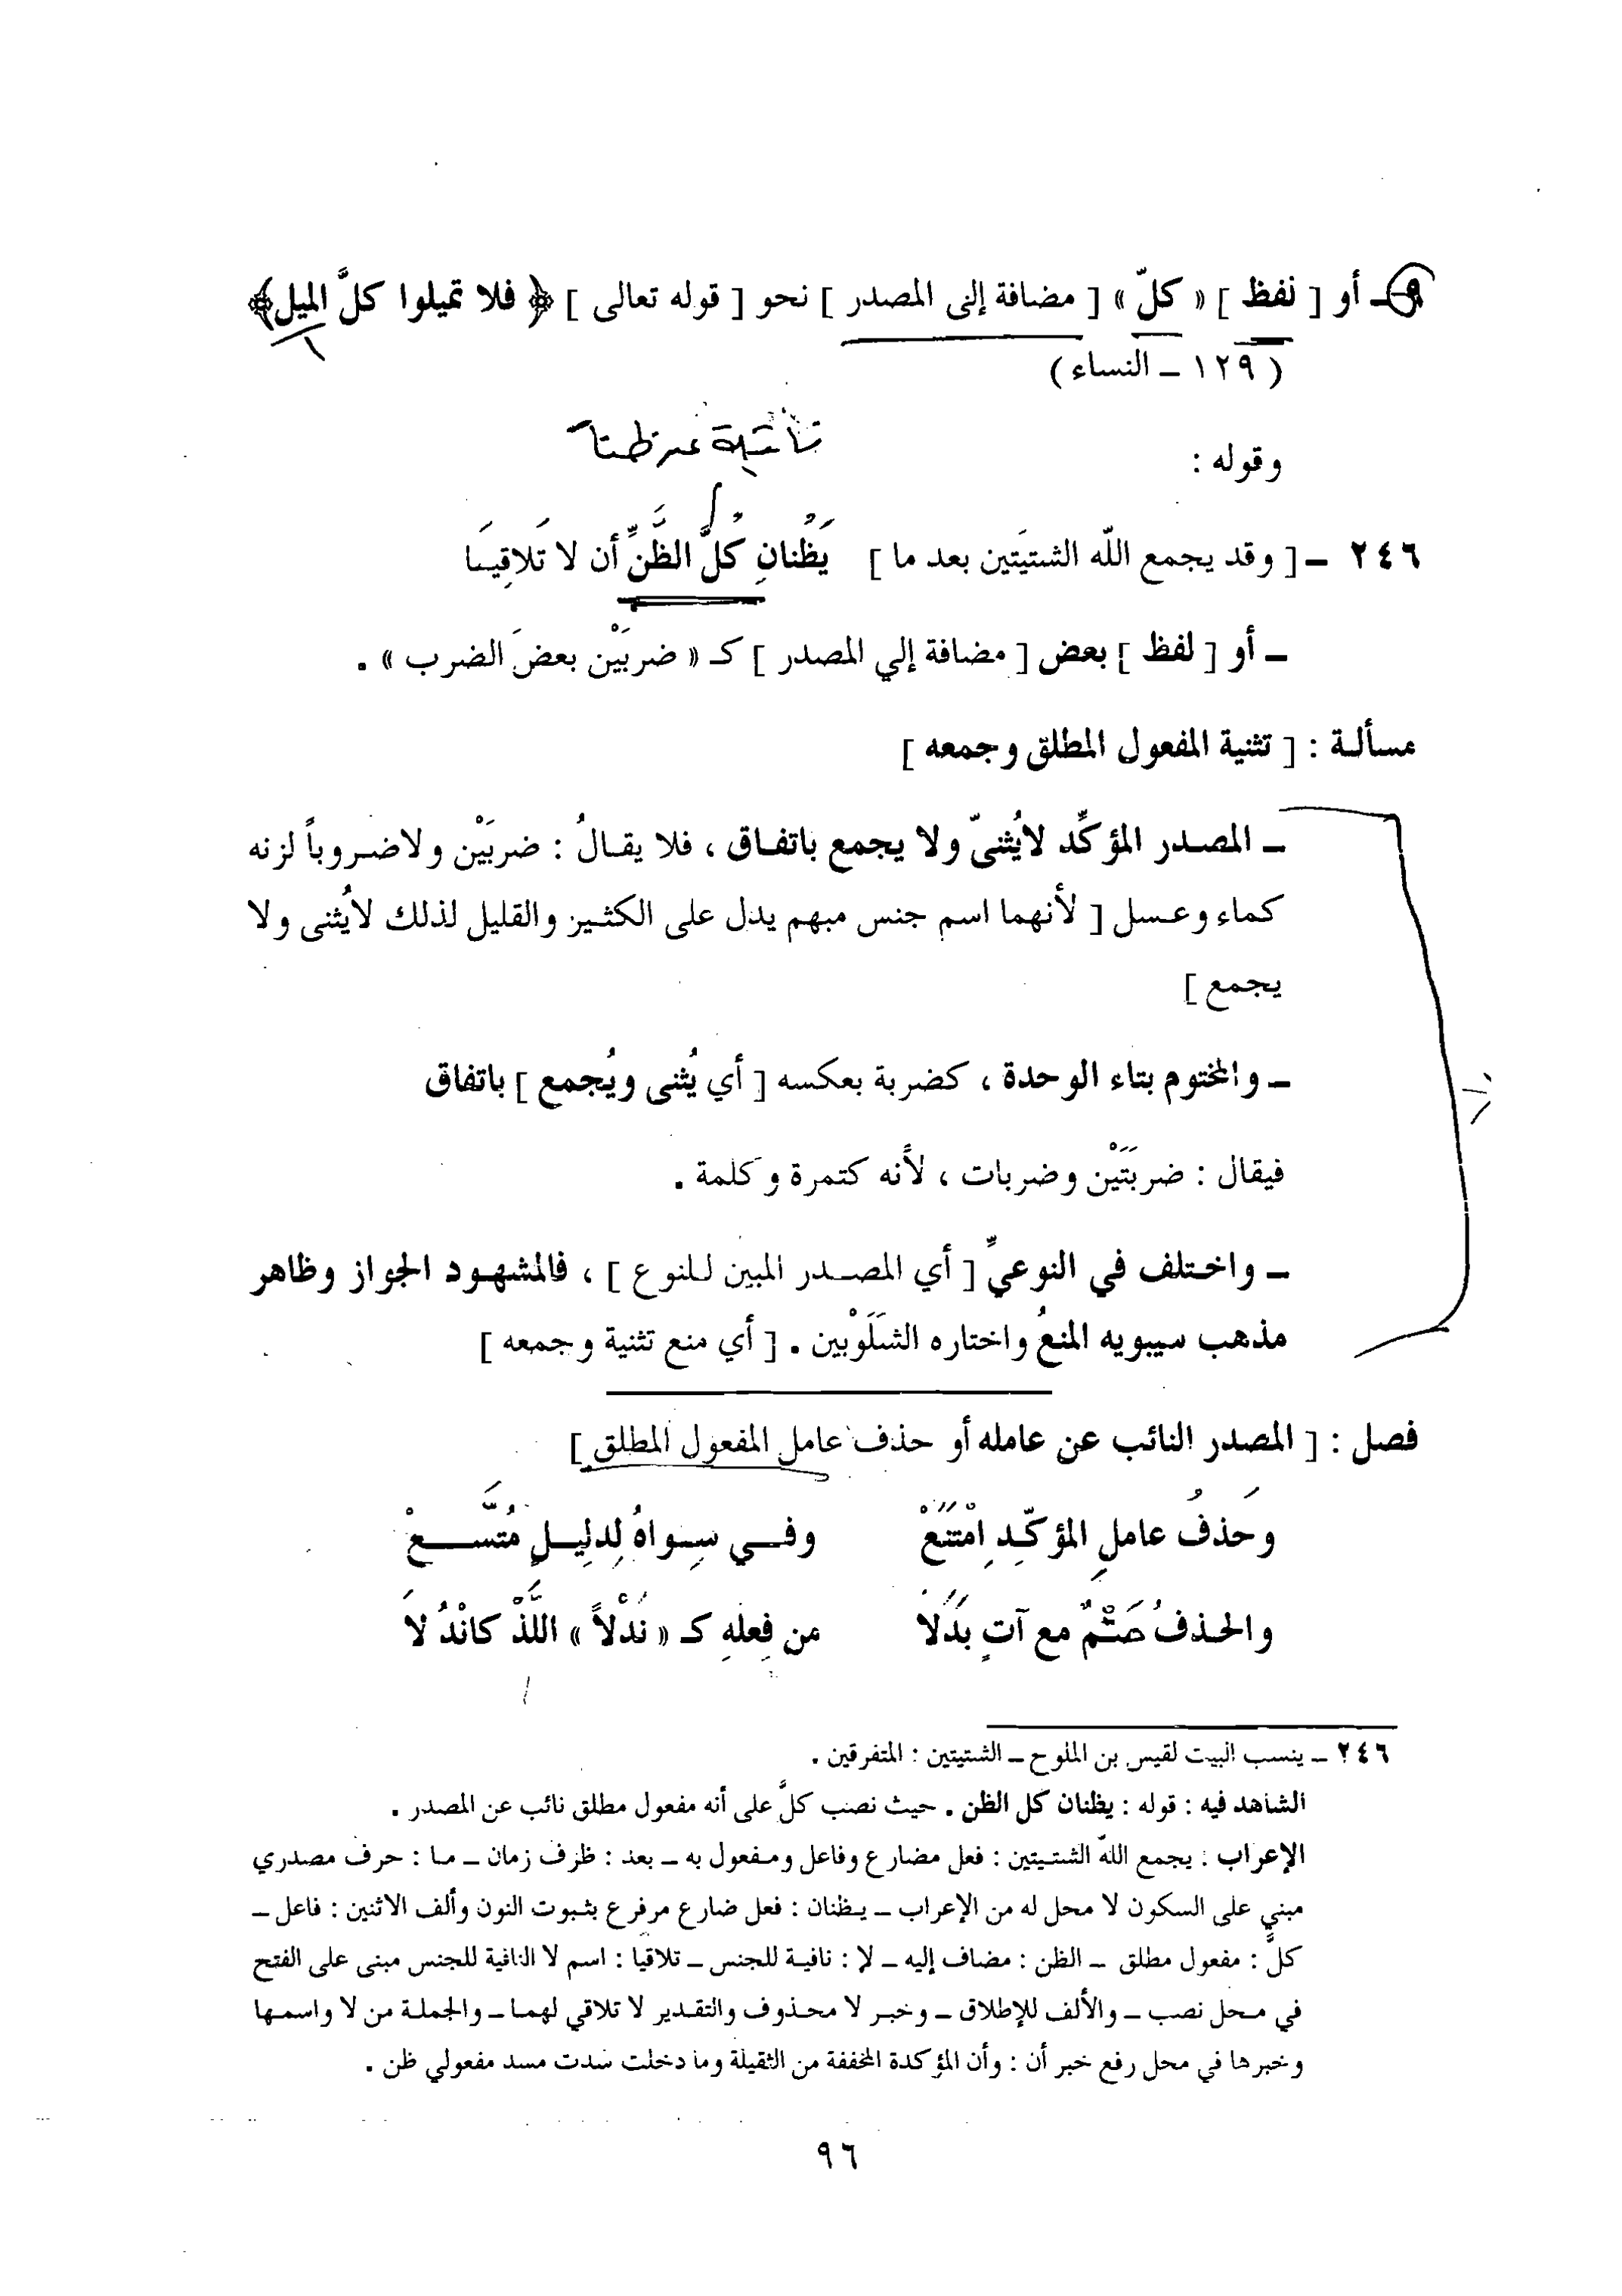 ٩ ـ أو [ لفظ ] « كلّ » [ مضافة إلى المصدر ] نحو [ قوله تعالى ] ﴿ فلا تميلوا كلَّ الميل ﴾
( ١٢٩ ـ النساء )
وقوله :
٢٤٦ ـ [ وقد يجمع اللّه الشتيتَين بعد ما ] يَظُنانِ كُلَّ الظَّنِّ أن لا تَلاقِيَا
ـ أو [ لفظ ] بعض [ مضافة إلي المصدر ] كـ « ضربَيْن بعضَ الضرب » .
مسألة : [ تثنية المفعول المطلق وجمعه ]
ـ المصدر المؤكِّد لايُثنىّ ولا يجمع باتفاق ، فلا يقالُ : ضربَيْن ولاضروباً لزنه
كماء وعسل [ لأنهما اسم جنس مبهم يدل على الكثير والقليل لذلك لايُثنى ولا
يجمع ]
ـ والمختوم بتاء الوحدة ، كضربة بعكسه [ أي يُثنى ويُجمع ] باتفاق
فيقال : ضربَتَيْن وضربات ، لأنه كتمرة وكلمة .
ـ واختلف في النوعيِّ [ أي المصدر المبين للنوع ] ، فالمشهود الجواز وظاهر
مذهب سيبويه المنعُ واختاره الشلَوْبين . [ أي منع تثنية وجمعه ]
فصل : [ المصدر النائب عن عامله أو حذف عامل المفعول المطلق ]
وَحَذفُ عاملِ المؤكّدِ امْتَنَعْ وفي سِواهُ لِدلِيلٍ مُتَّسَعْ
والحذفُ حَتْمٌ مع آتٍ بَدَلَا من فِعلهِ كـ « نَدْلاً » اللَّذْ كانْدُلاَ
٢٤٦ ـ ينسب البيت لقيس بن الملوح ـ الشتيتين : المتفرقين .
الشاهد فيه : قوله : يظنان كل الظن . حيث نصب كلَّ على أنه مفعول مطلق نائب عن المصدر .
الإعراب : يجمع اللّه الشتيتين : فعل مضارع وفاعل ومفعول به ـ بعد : ظرف زمان ـ ما : حرف مصدري
مبني على السكون لا محل له من الإعراب ـ يظنان : فعل ضارع مرفرع بثبوت النون وألف الاثنين : فاعل ـ
كلَّ : مفعول مطلق ـ الظن : مضاف إليه ـ لا : نافية للجنس ـ تلاقيا : اسم لا النافية للجنس مبنى على الفتح
في محل نصب ـ والألف للإطلاق ـ وخبر لا محذوف والتقدير لا تلاقي لهما ـ والجملة من لا واسمها
وخبرها في محل رفع خبر أن : وأن المؤكدة المخففة من الثقيلة وما دخلت سدت مسد مفعولي ظن .
٩٦